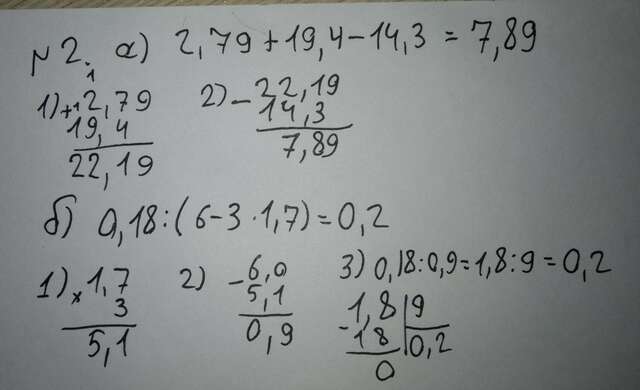 №2. а) 2,79+19,4-14,3=7,89
1) +2,79 2) -22,19
19,4 14,3
22,19 7,89
б) 0,18:(6-3·1,7)=0,2
1) ×1,7 2) -6,0 3) 0,18:0,9=1,8:9=0,2
3 5,1 1,8 9
5,1 0,9 -18 0,2
0